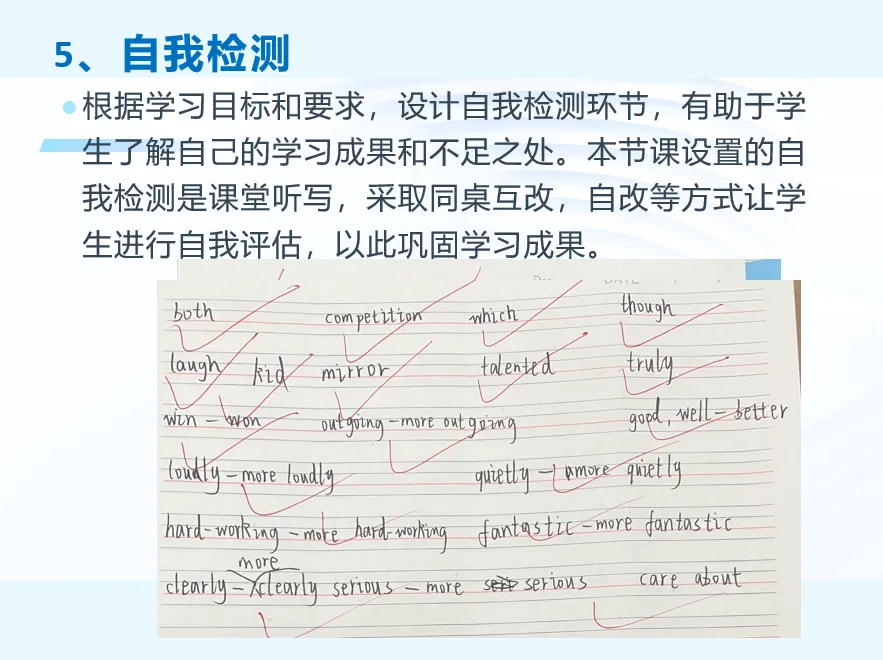 5、自我检测
根据学习目标和要求，设计自我检测环节，有助于学
生了解自己的学习成果和不足之处。本节课设置的自
我检测是课堂听写，采取同桌互改，自改等方式让学
生进行自我评估，以此巩固学习成果。
both competition which though
laugh kid mirror talented truly
win – won outgoing – more outgoing good, well – better
loudly – more loudly quietly – more quietly
hard-working – more hard-working fantastic – more fantastic
more
clearly – clearly serious – more serious care about